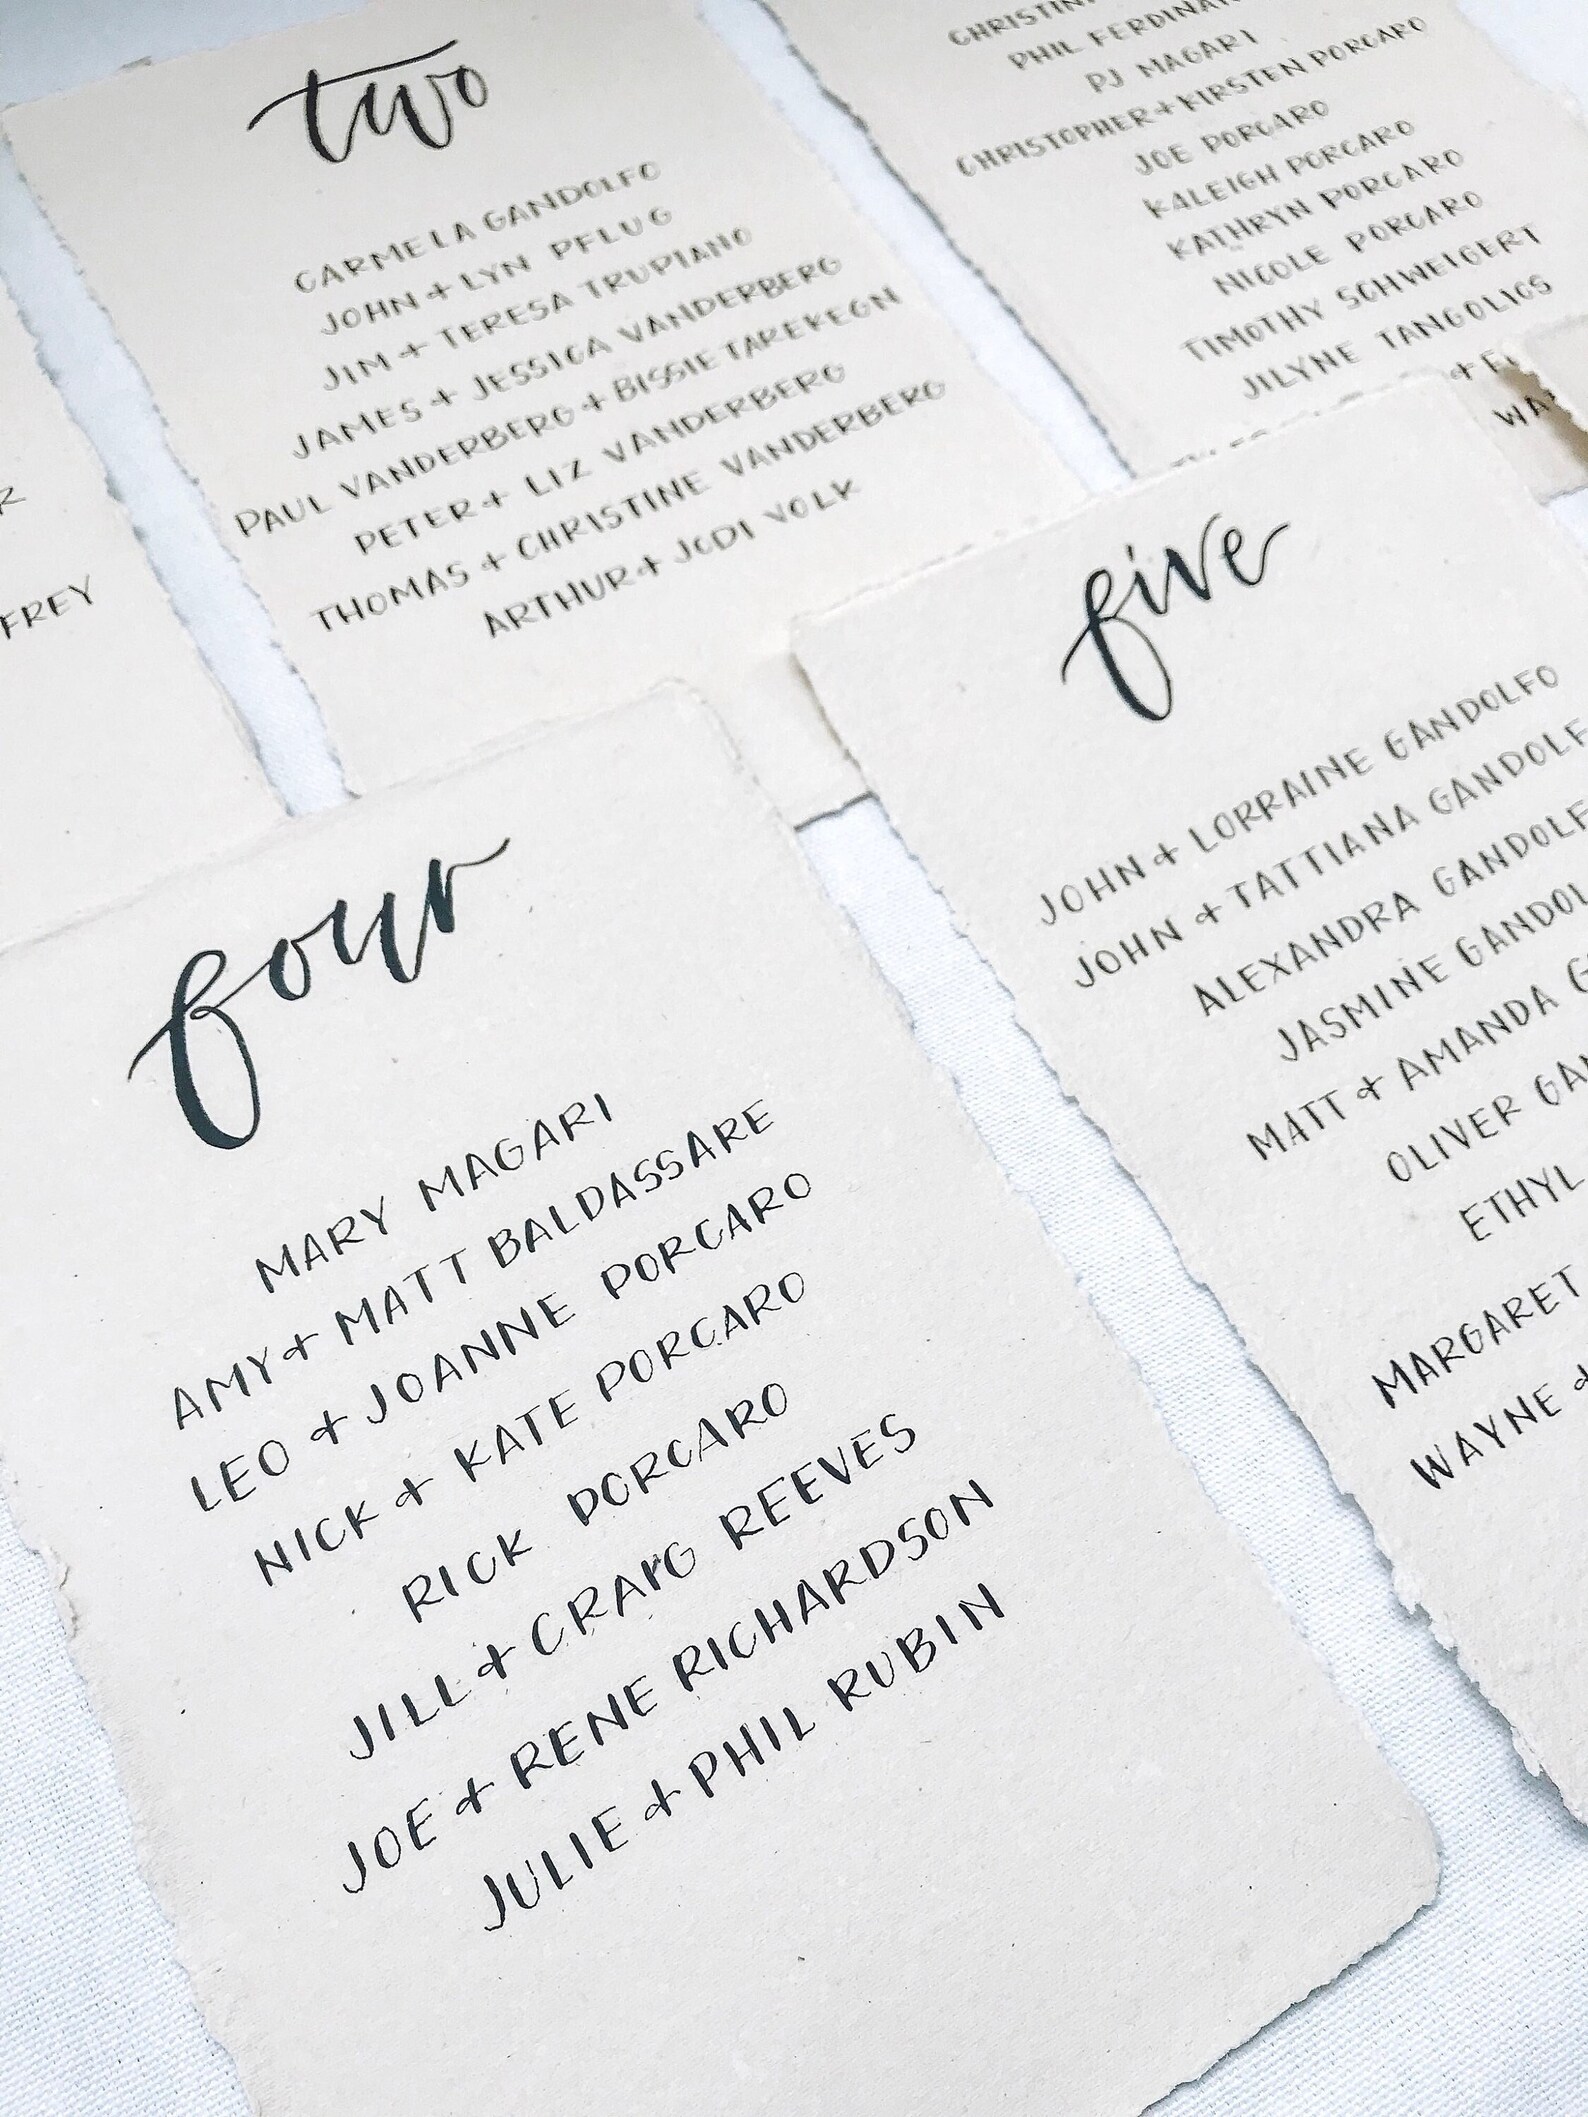 FREY
two
CARMELA GANDOLFO
JOHN + LYN PFLUG
JIM + TERESA TRUPIANO
JAMES + JESSICA VANDERBERG
PAUL VANDERBERG + BISSIE TAREKEGN
PETER + LIZ VANDERBERG
THOMAS + CHRISTINE VANDERBERG
ARTHUR + JODI VOLK
PHIL
PJ MAGARI
CHRISTOPHER + KIRSTEN PORCARO
JOE PORCARO
KALEIGH PORCARO
KATHRYN PORCARO
NICOLE PORCARO
TIMOTHY SCHWEIGERT
JILYNE TANGOLICS
four
MARY MAGARI
AMY + MATT BALDASSARE
LEO + JOANNE PORCARO
NICK + KATE PORCARO
RICK PORCARO
JILL + CRAIG REEVES
JOE + RENE RICHARDSON
JULIE + PHIL RUBIN
five
JOHN + LORRAINE GANDOLFO
JOHN + TATTIANA GANDOLF
ALEXANDRA GANDOLF
JASMINE GANDOL
MATT + AMANDA G
OLIVER GAN
ETHYL
MARGARET
WAYNE +